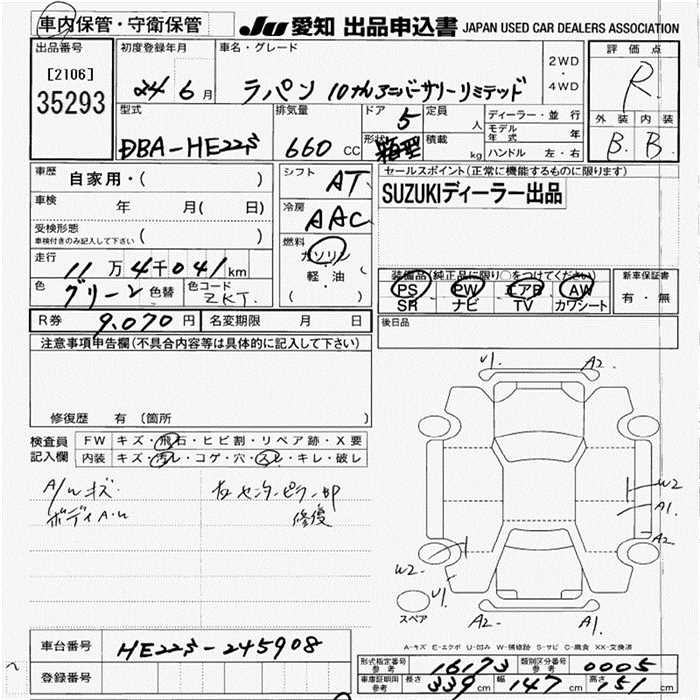 車内保管・守衛保管
JU 愛知 出品申込書 JAPAN USED CAR DEALERS ASSOCIATION
出品番号
[2106]
35293
初度登録年月
24 6月
車名・グレード
ラパン 10thアニバーサリーリミテッド
2WD
・
4WD
評価点
R
外装 内装
B B
型式
DBA-HE22S
排気量
660 CC
ドア
5
形状
箱型
定員
人
積載
kg
ディーラー・並行
モデル年式 年
ハンドル 左・右
車歴 自家用・( )
車検 年 月( 日)
受検形態
車検付きのみ記入して下さい ( )
走行
11万4千041km
色 グリーン 色替
色コード ZKT
シフト AT
冷房 AAC
燃料
ガソリン
・
軽・油
( )
セールスポイント(正常に機能するものに限ります)
SUZUKIディーラー出品
装備品(純正品に限り○をつけてください)
PS PW エアB AW
SR ナビ TV カワシート
新車保証書
有・無
R券 9,070円 名変期限 月 日
後日品
注意事項申告欄(不具合内容等は具体的に記入して下さい)
修復歴 有 (箇所
検査員記入欄
FW キズ・飛石・ヒビ割・リペア跡・X要
内装 キズ・汚レ・コゲ・穴・スレ・キレ・破レ
A/Wキズ
ボディA・U
右センターピラー部
修復
U1 A2
W2
A1
A2
W2
U1
スペア
A2 A1
A-キズ E-エクボ U-凹み W-補修跡 S-サビ C-腐食 XX-交換済
車台番号 HE22S-245908
登録番号
形式指定番号
参考
16173
類別区分番号
参考
0005
車庫証明用
参考
長さ 339cm 幅 147cm 高さ 151cm